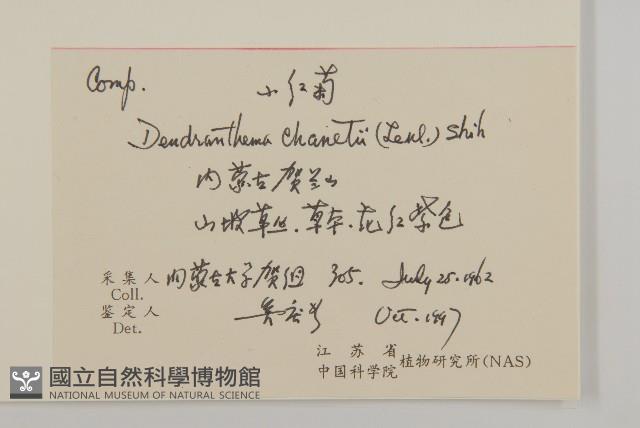 Comp. 小红菊
Dendranthema chanetii (Levl.) Shih
内蒙古贺兰山
山坡草丛.草本.花红紫色
采集人 内蒙古大学贺组 305. July 25.1962
Coll.
鉴定人 Oct.1997
Det.
江苏省
中国科学院 植物研究所(NAS)
國立自然科學博物館
NATIONAL MUSEUM OF NATURAL SCIENCE